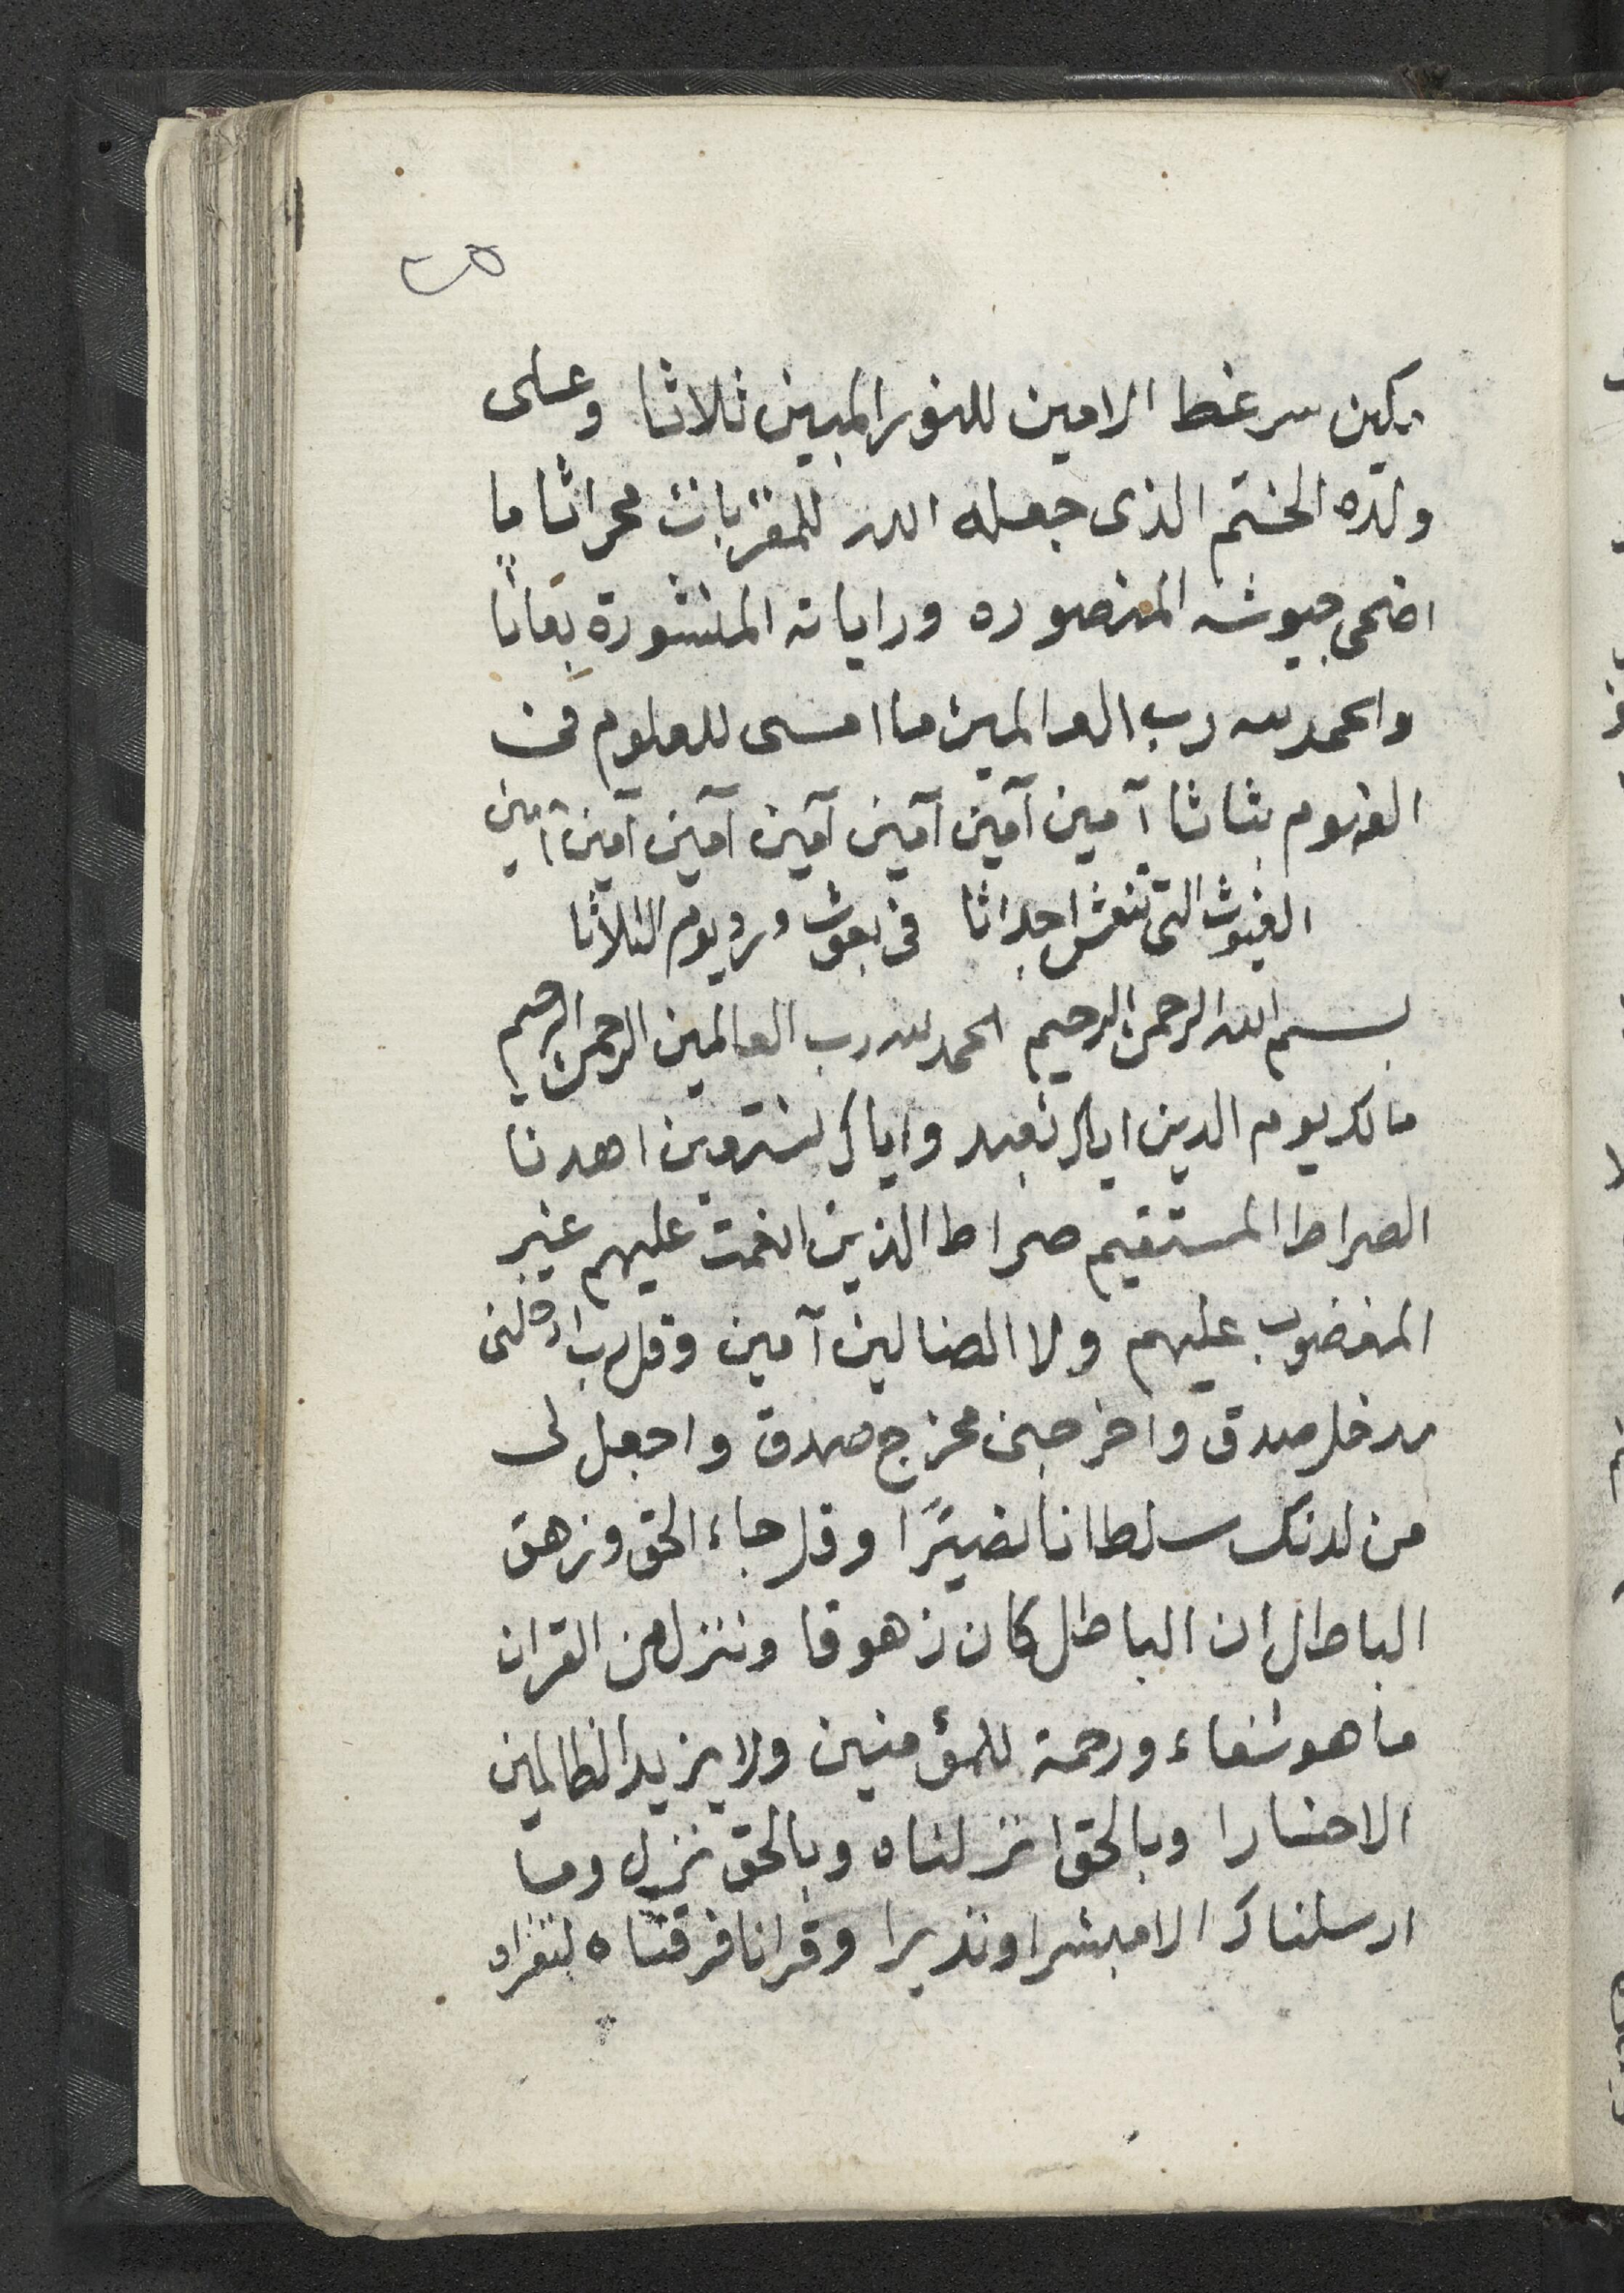 ٢٥
سر غط الامين للنور المبين ثلاثا وعلى
ولده الختم الذى جعله الله للمقربات محراثا ما
اضحى جيوشه المنصوره وراياته المنشورة بعاثا
والحمد لله رب العالمين ما امسى للعلوم فى
الفهوم بثاثا آمين آمين آمين آمين آمين آمين آمين
الغيوث التى تنعش اجداثا فى بعوث ورد يوم الثلاثا
بسم الله الرحمن الرحيم الحمد لله رب العالمين الرحمن الرحيم
مالك يوم الدين اياك نعبد واياك نستعين اهدنا
الصراط المستقيم صراط الذين انعمت عليهم غير
المغضوب عليهم ولا الضالين آمين وقل رب ادخلنى
مدخل صدق واخرجنى مخرج صدق واجعل لى
من لدنك سلطانا نصيرًا وقل جاء الحق وزهق
الباطل ان الباطل كان زهوقا وننزل من القران
ما هو شفاء ورحمة للمؤمنين ولا يزيد الظالمين
الا خسارا وبالحق انزلناه وبالحق نزل وما
ارسلناك الا مبشرا ونذيرا وقرانا فرقناه لتقراه